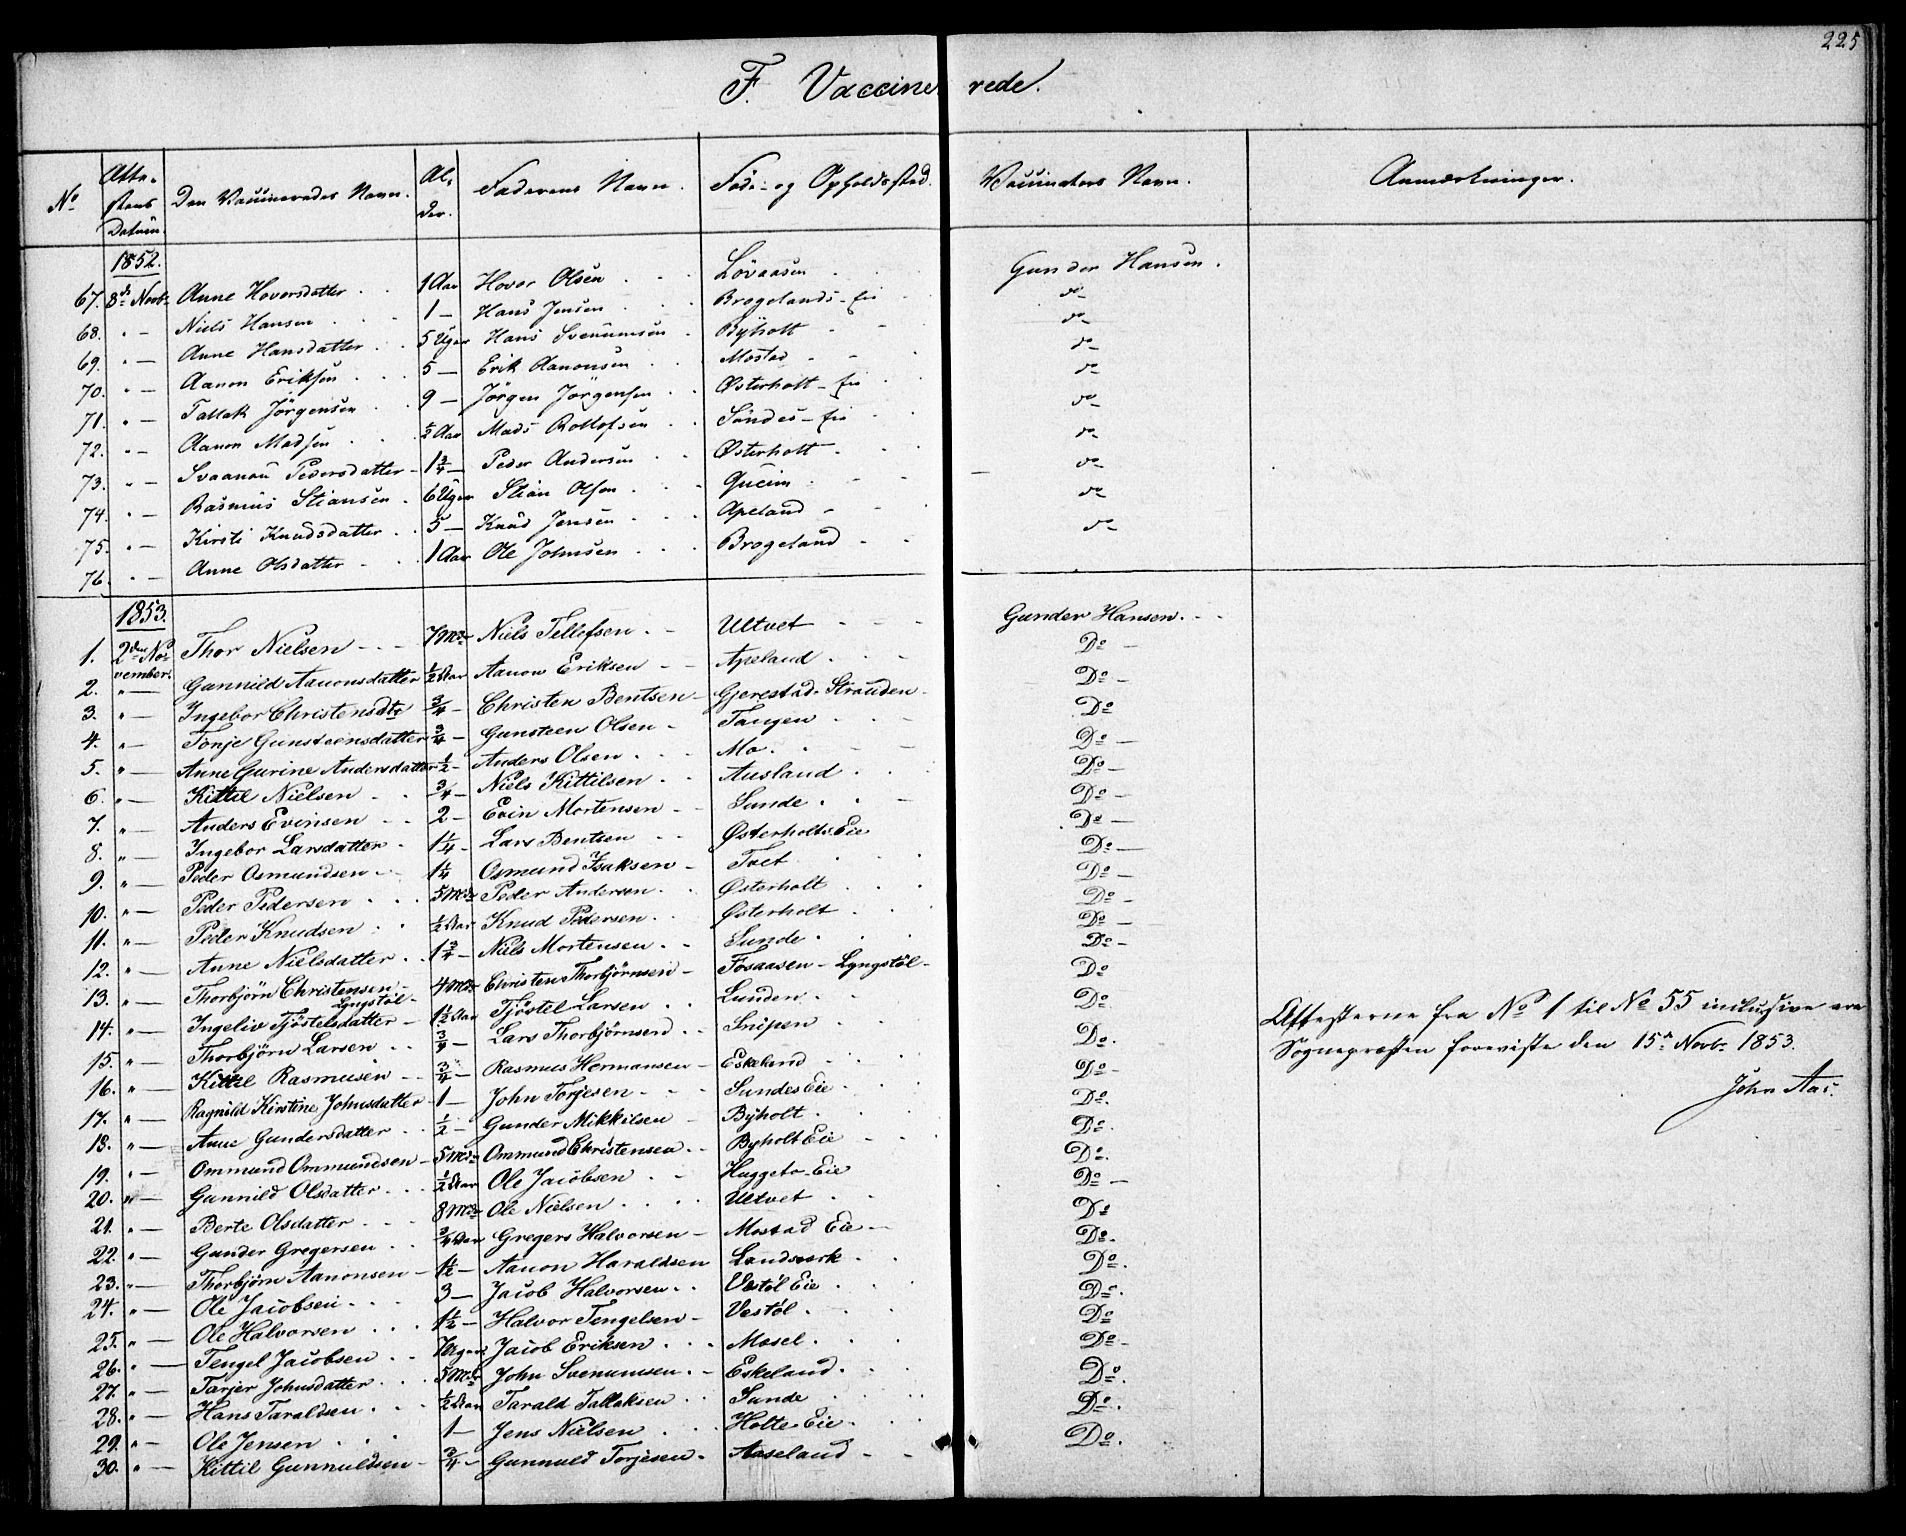 225
F. Vaccinerede.
No Attestens Datum. Den Vaccineredes Navn. Alder. Faderens Navn. Føde- og Opholdssted. Vaccinators Navn. Anmærkninger.
1852.
67. 8de Novbr. Anne Hoversdatter 1 Aar Hover Olsen Lövaasen Gunder Hansen.
68. " — Niels Hansen 1 — Hans Jensen Brogelands-Eie do
69. " — Anne Hansdatter 5 Uger Hans Svenumsen Byholt do
70. " — Aanon Eriksen 5 — Erik Aanonsen Mostad do
71. " — Tallak Jörgensen 9 — Jörgen Jörgensen Østerholt-Eie do
72. " — Aanon Madsen ½ Aar Mads Rollofsen Sundes-Eie do
73. " — Svaanau Pedersdatter 1¾ — Peder Andersen Østerholt do
74. " — Rasmus Stiansen 6 Uger Stian Olsen do
75. " — Kirsti Knudsdatter 5 — Knud Jensen Apeland do
76. " — Anne Olsdatter 1 Aar Ole Johnsen Brogeland do
1853.
1. 2den November. Thor Nielsen 7 Mdr Niels Tellefsen Ultvet Gunder Hansen.
2. " — Gunnild Aanonsdatter ½ Aar Aanon Eriksen Apeland Do
3. " — Ingebor Christensdtr ¾ — Christen Bentsen Gjerestad-Stranden Do
4. " — Tonje Gunsteensdatter ¾ — Gunsteen Olsen Tangen Do
5. " — Anne Gurine Andersdatter ½ — Anders Olsen Mo Do
6. " — Kittil Nielsen ¾ — Niels Kittilsen Ausland Do
7. " — Anders Evinsen 2 — Evin Mortensen Sunde Do
8. " — Ingebor Larsdatter 1¼ — Lars Bentsen Østerholts Eie Do
9. " — Peder Osmundsen 1¼ Osmund Isaksen Tvet Do
10. " — Peder Pedersen 5 Mdr Peder Andersen Østerholt Do
11. " — Peder Knudsen ½ Aar Knud Pedersen Østerholt Do
12. " — Anne Nielsdatter 1¾ — Niels Mortensen Sunde Do
13. " — Thorbjörn Christensen Lyngstöl 4 Mdr Christen Thorbjörnsen Fosaasen-Lyngstöl Do
14. " — Ingeliv Tjöstelsdatter 1½ Aar Tjöstel Larsen Lunden Do
15. " — Thorbjörn Larsen ¾ — Lars Thorbjörnsen Snipen Do
16. " — Kittil Rasmusen ¾ — Rasmus Hermansen Eskeland Do
17. " — Ragnild Kirstine Johnsdatter 1 — John Torjesen Sundes Eie Do
18. " — Anne Gundersdatter ½ — Gunder Mikkilsen Byholt Do
19. " — Ommund Ommundsen 5 Mdr Ommund Christensen Byholt Eie Do
20. " — Gunnild Olsdatter ½ Aar Ole Jacobsen Huggeto-Eie Do
21. " — Berte Olsdatter 8 Mdr Ole Nielsen Ultvet Do
22. " — Gunder Gregersen ¾ Aar Gregers Halvorsen Mostad Eie Do
23. " — Thorbjörn Aanonsen 1½ — Aanon Haraldsen Landsverk Do
24. " — Ole Jacobsen 3 — Jacob Halvorsen Vestöl Eie Do
25. " — Ole Halvorsen 1½ — Halvor Tengelsen Vestöl Do
26. " — Tengel Jacobsen 7 Uger Jacob Eriksen Mosel Do
27. " — Tarjer Johnsdatter 5 Mdr John Svenumsen Eskeland Do
28. " — Hans Taraldsen ½ Aar Tarald Tallaksen Sunde Do
29. " — Ole Jensen 1 — Jens Nielsen Holte-Eie Do
30. " — Kittil Gunnuldsen ¾ — Gunnuld Torjesen Aaseland Do
Attesterne fra No 1 til No 55 inclusive ere
Sognepræsten foreviste den 15de Novbr 1853.
John Aas.